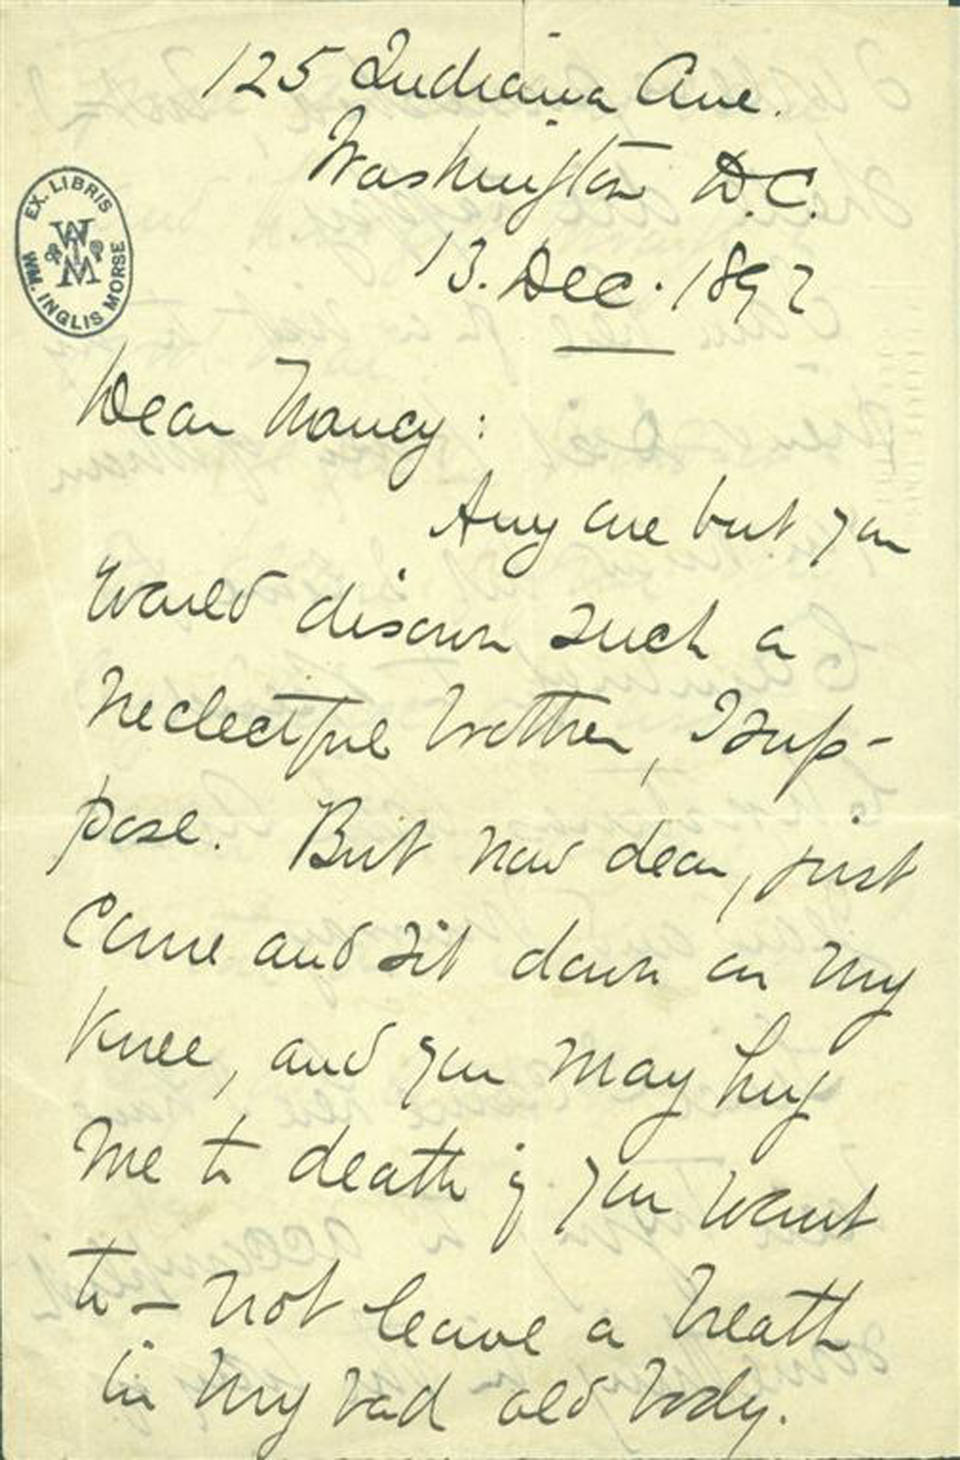 125 Indiana Ave.
Washington D.C.
13. Dec. 1897
EX. LIBRIS
WIM
WM. INGLIS MORSE
Dear Nancy:
Any one but you
would disown such a
neclectful brother, I sup-
pose. But now dear, just
come and sit down on my
knee, and you may hug
me to death if you want
to – not leave a breath
in my bad old body.